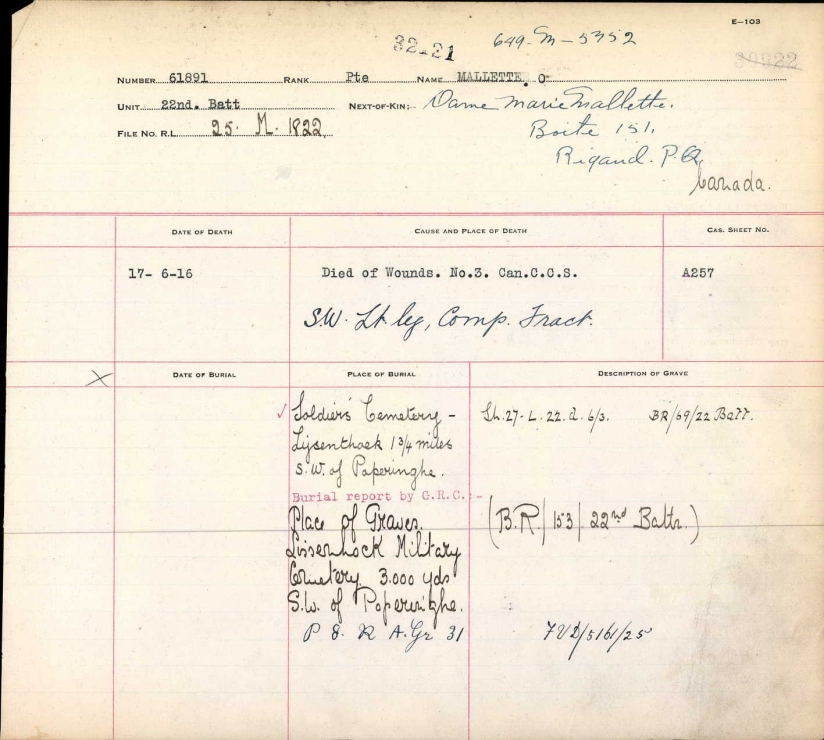 E—103
32-21 649-M-5352
39922
NUMBER 61891 RANK Pte NAME MALLETTE. O-
UNIT 22nd. Batt NEXT-OF-KIN:- Dame Marie Mallette.
FILE NO. R.L. 25. M. 1822. Boite 151,
Rigaud. P.Q.
Canada.
DATE OF DEATH CAUSE AND PLACE OF DEATH CAS. SHEET NO.
17- 6-16 Died of Wounds. No.3. Can.C.C.S. A257
S.W. Lt. leg, Comp. Fract.
DATE OF BURIAL PLACE OF BURIAL DESCRIPTION OF GRAVE
X
✓ Soldiers' Cemetery - Sh. 27- L. 22. d. 6/3. BR/69/22 Batt.
Lijsenthoek 1 3/4 miles
S.W. of Poperinghe.
Burial report by G.R.C.:-
Place of Graves. (B.R./153/22nd Battn.)
Lissenhock Military
Cemetery 3.000 yds
S.W. of Poperinghe.
P 8. R A. Gr 31 7VD/5161/25